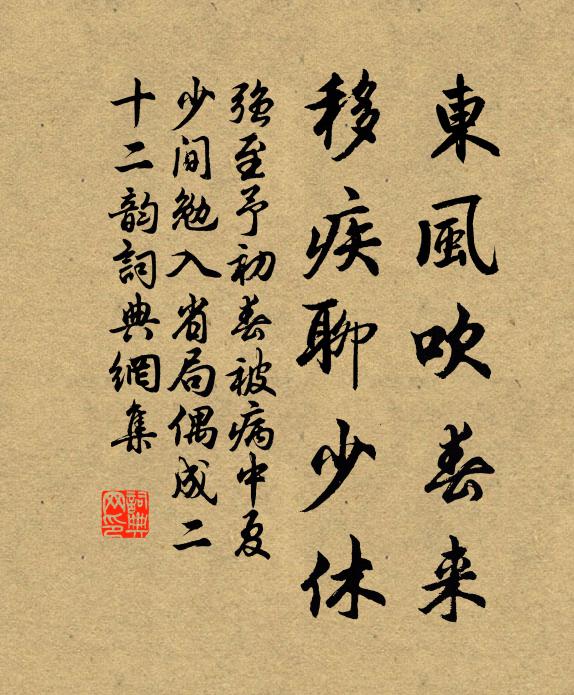 東風吹春来
移疾聊少休
强至予初春被病中夏
少间勉入省局偶成二
十二韵詞典網集
詞典
网印